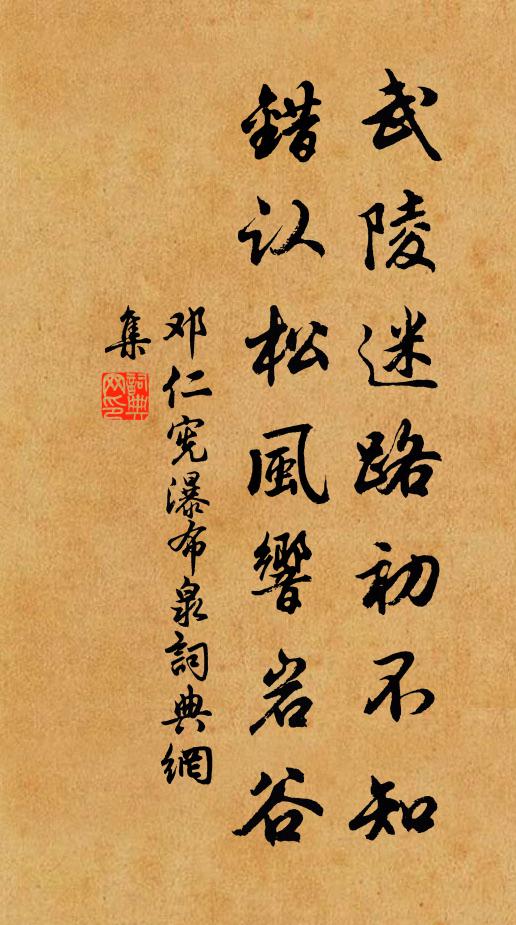 武陵迷路初不知
错认松風響岩谷
邓仁宪瀑布泉詞典網
集
詞典网印